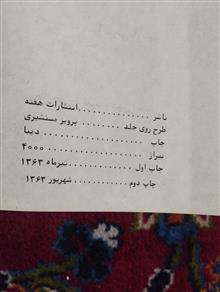 ناشر ............... انتشارات هفته
طرح روی جلد ........ پرویز مستشیری
چاپ .................. دیبا
تیراژ .................. ۴۰۰۰
چاپ اول .............. تیرماه ۱۳۶۳
چاپ دوم ............ شهریور ۱۳۶۳